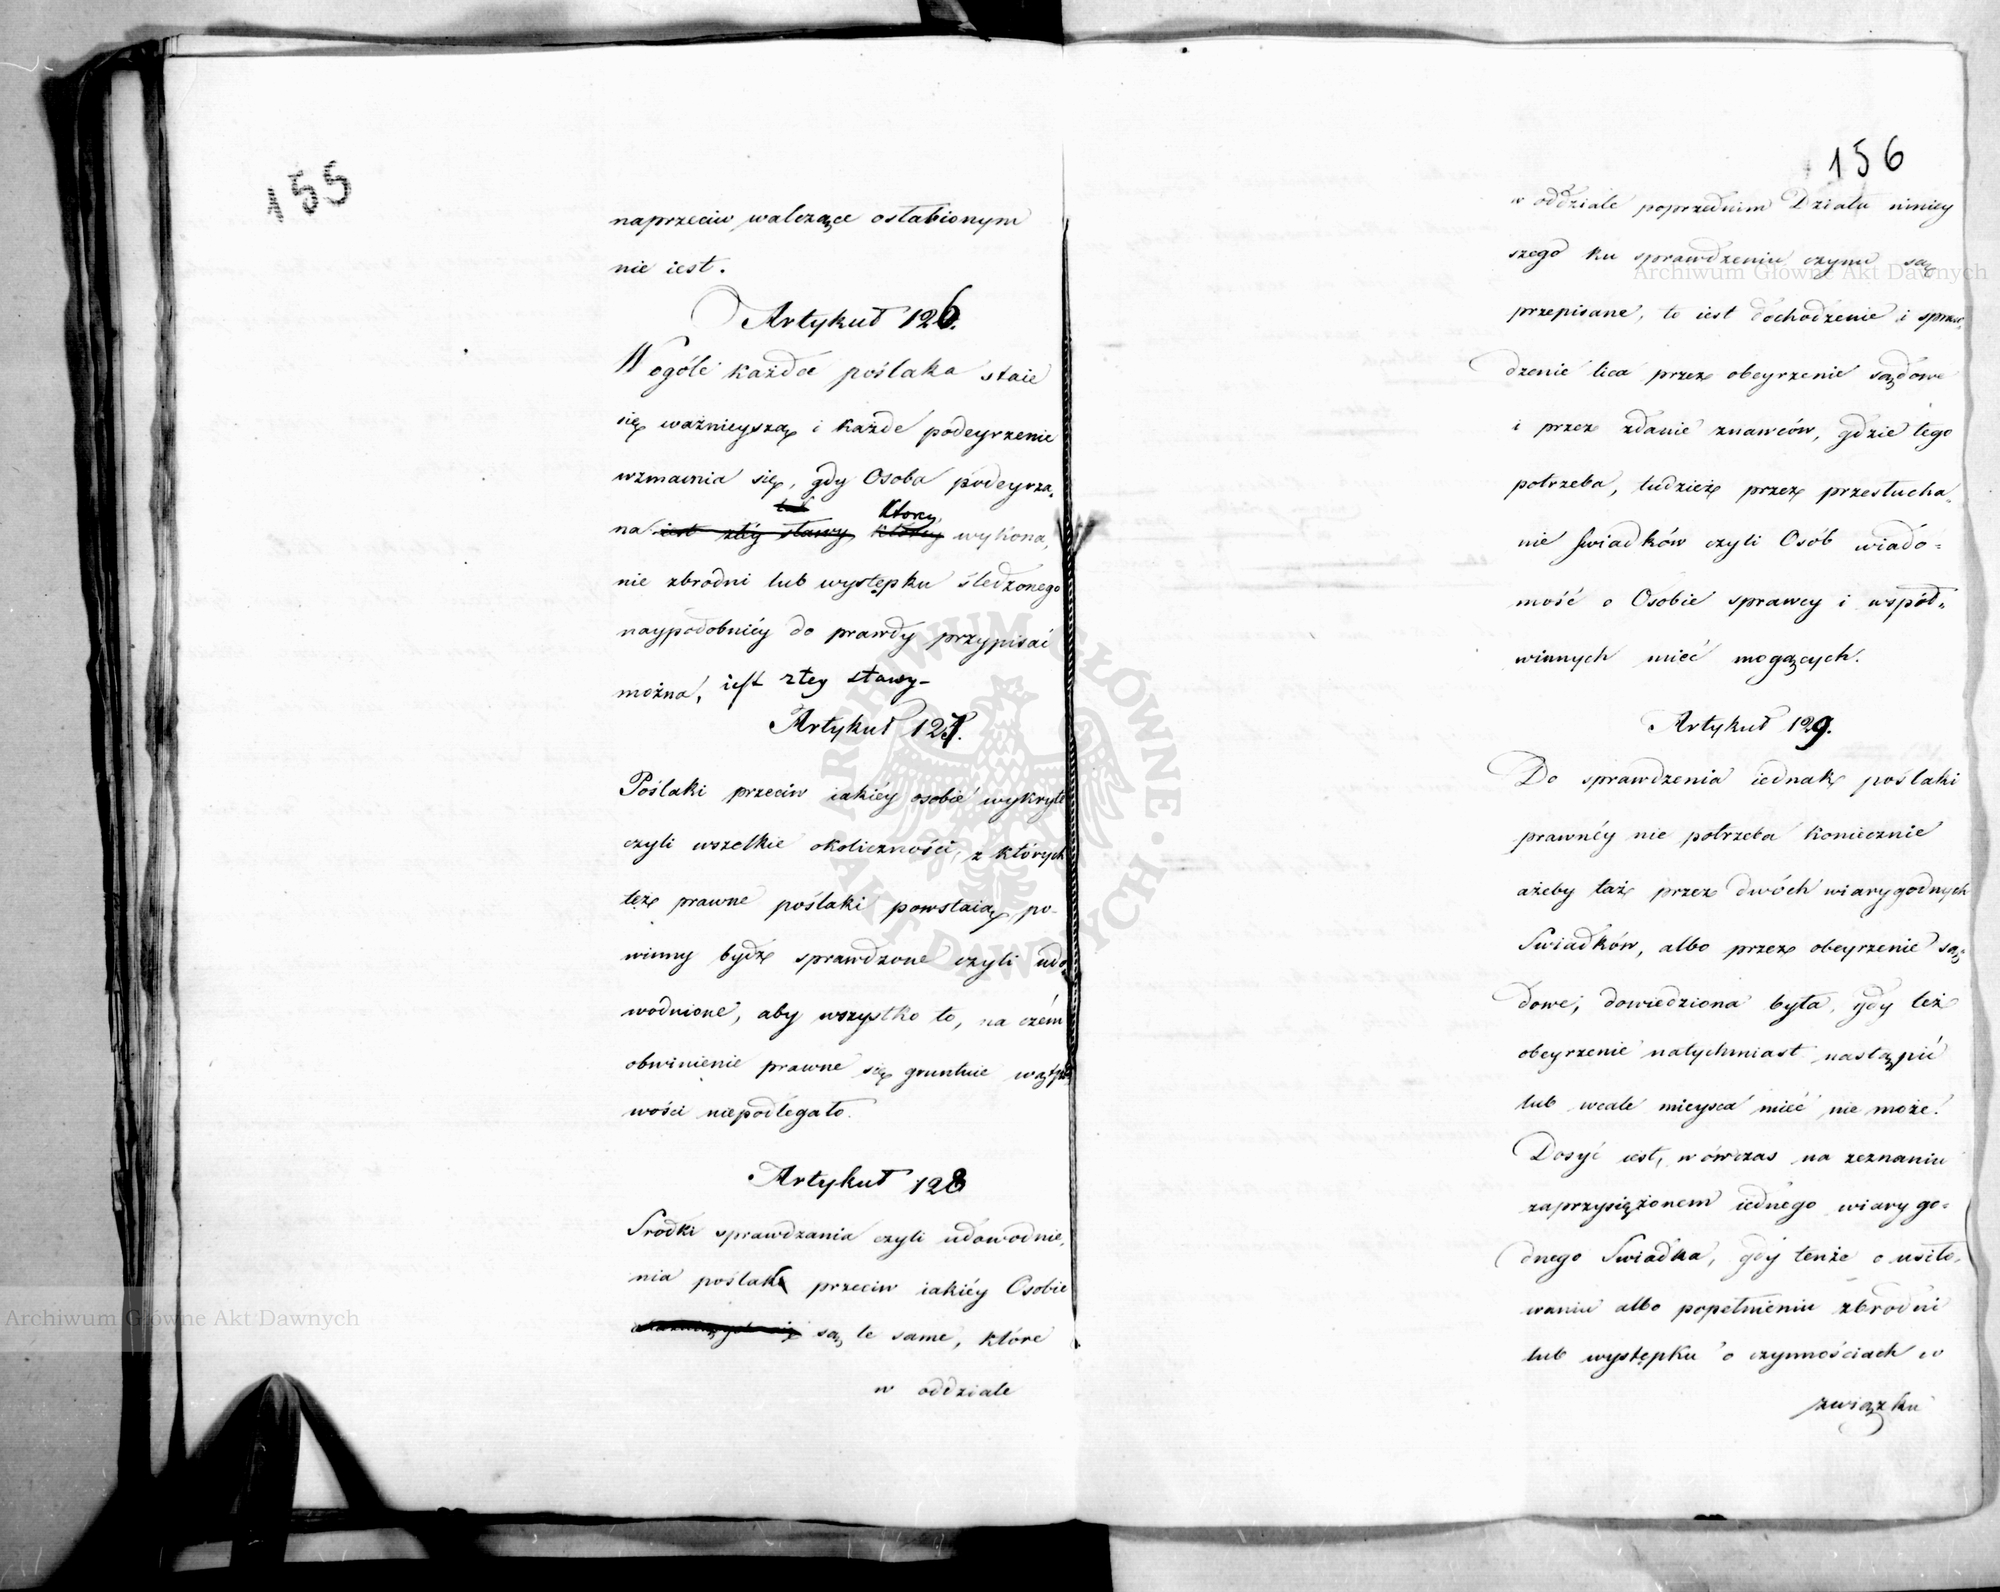 155
naprzeciw walczące osłabionym
nie iest.
Artykuł 126.
W ogóle każda poślaka staie
się ważnieyszą i każde podeyrzenie
wzmacnia się, gdy Osoba podeyrza,
któréy
na iest złéy sławy któréy wykona,
nie zbrodni lub występku śledzonego
naypodobniéy do prawdy przypisać
można, iest złey sławy-
Artykuł 127.
Poślaki przeciw iakiéy osobie wykryte
czyli wszelkie okoliczności, z których
też prawne poślaki powstaią, po-
winny bydź sprawdzone czyli udo
wodnione, aby wszystko to, na czém
obwinienie prawne się gruntuie wątpli
wości niepodlegało.
Artykuł 128
Srodki sprawdzania czyli udowodnie,
nia poślak przeciw iakiéy Osobie
są te same, które
w oddziale
156
w oddziale poprzednim Działu niniey
szego ku sprawdzeniu czynu są
przepisane, to iest dochodzenie i spraw,
dzenie lica przez obeyrzenie sądowe
i przez zdanie znawców, gdzie tego
potrzeba, tudzież przez przesłucha,
nie Swiadków czyli Osób wiado=
mość o Osobie sprawcy i współ=
winnych mieć mogących.
Artykuł 129.
Do sprawdzenia iednak poślaki
prawnéy nie potrzeba koniecznie
ażeby taż przez dwóch wiarygodnych
Swiadków, albo przez obeyrzenie są,
dowe, dowiedziona była, gdy też
obeyrzenie natychmiast nastąpić
lub wcale mieysca mieć nie może.
Dosyć iest, wówczas na zeznaniu
zaprzysiężonem iednego wiarygo=
dnego Swiadka, gdy tenże o usiło,
waniu albo popełnieniu zbrodni
lub występku o czynnościach w
związku
Archiwum Główne Akt Dawnych
Archiwum Główne Akt Dawnych
ARCHIWUM GŁÓWNE · AKT DAWNYCH ·